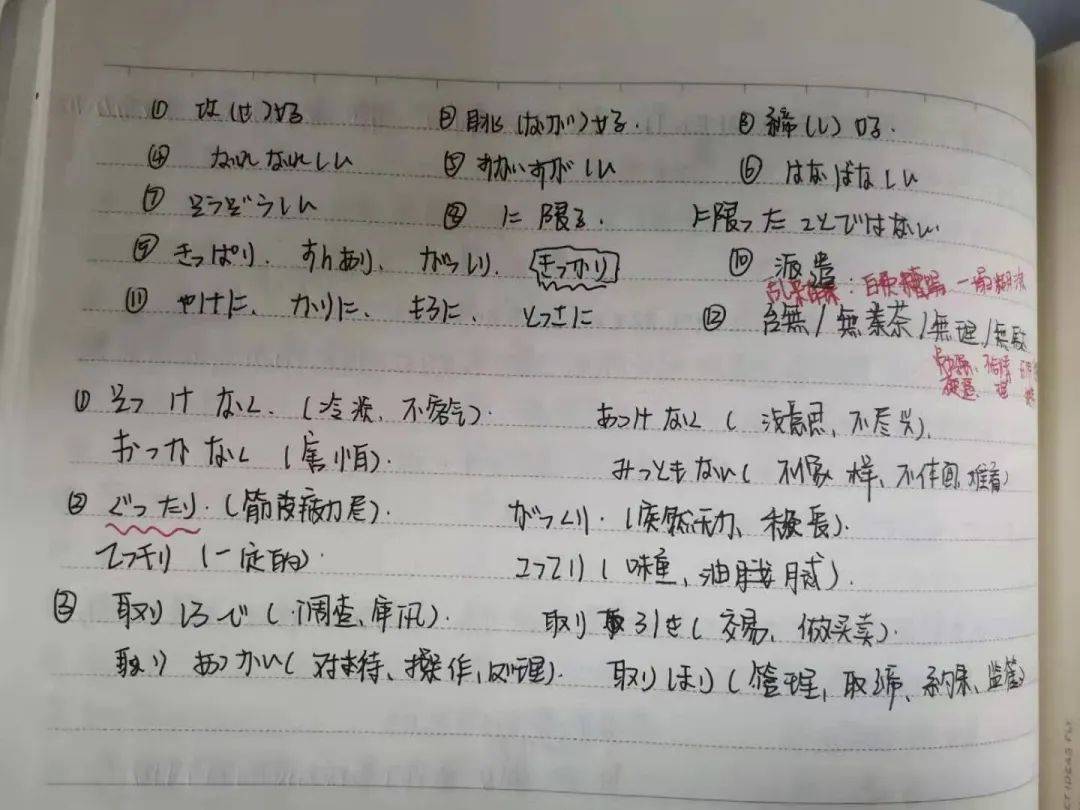 ① 攻(せ)める ② 眺(なが)める. ③ 締(し)める.
④ なれなれしい ⑤ すがすがしい ⑥ はなばなしい
⑦ そうぞうしい ⑧ に限る. に限ったことではない
⑨ きっぱり. すんなり、がっしり、きっかり ⑩ 派遣
一塌糊涂
⑪ やけに、かりに、もろに、とっさに ⑫ 台無/無茶/無理/無駄
① そっけなく.(冷淡、不客气). あっけなく(没意思、不尽兴).
おっかなく(害怕). みっともない(不像样、不体面,难看)
② ぐったり.(筋疲力尽). がっくり.(突然无力、
てっきり(一定的). こってり(味重、油腻腻).
③ 取りしらべ(调查、审讯). 取り引き(交易、做买卖).
取りあつかい(对待、操作,处理). 取りしまり(管理,取缔、约束、监管)